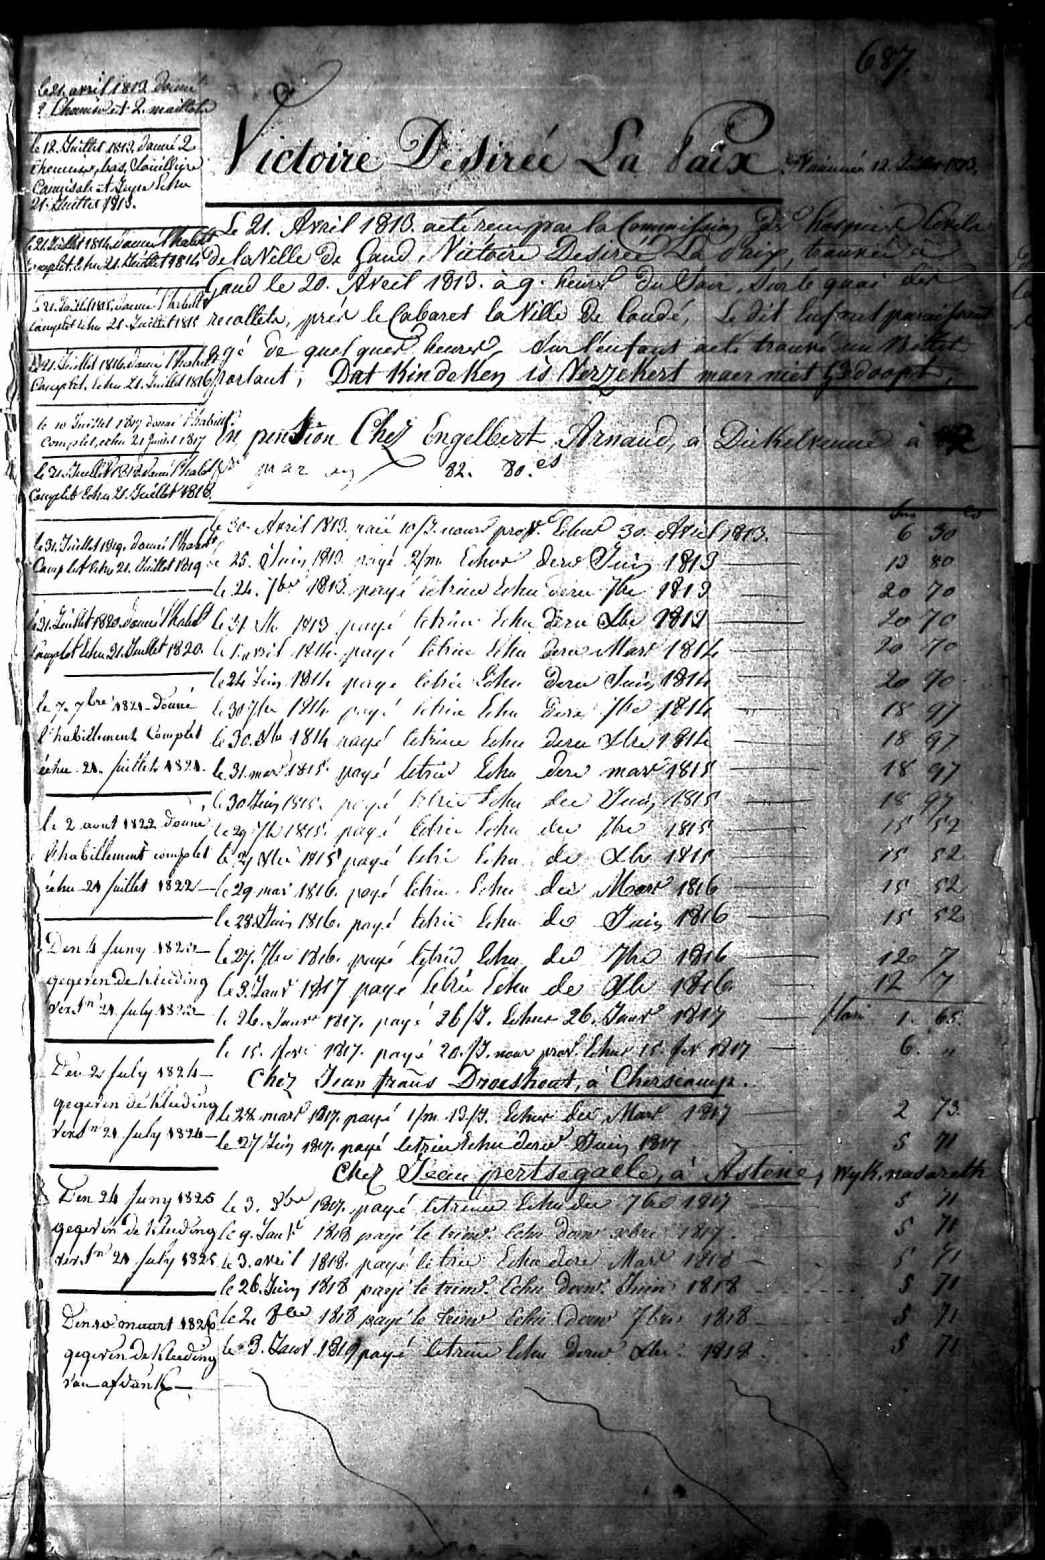 687.
le 21. avril 1813. donné
2 Chemises et 2. maillots
le 12. Juillet 1813. donné 2
chemises, bas, Souilliers
Camisole et Jupe echu
21. Juillet 1813.
le 21 Juillet 1814 donné l'habill
complet. Echu 21. Juillet 1814
le 21. Juillet 1815. donné l'habill
complet echu 21. Juillet 1815
le 21. Juillet 1816. donné l'habill
Complet. Echu 21. Juillet 1816
le 10 Juillet 1817 donné l'habill
complet, echu 21 Juillet 1817
le 21. Juillet 1818 donné l'habill
Complet Echu 21. Juillet 1818.
le 31. Juillet 1819. donné l'habill
Complet Echu 21. Juillet 1819
le 31. Juillet 1820. donné l'habill
Complet Echu 21. Juillet 1820.
le 7. 7bre 1821 - Donné
l'habillement Complet
échu 21. Juillet 1821.
le 2 aout 1822 Donné
l'habillement complet
échu 21 Juillet 1822 -
Den 4 Juny 1823
gegeven de kleeding
vers.n 21. July 1823
Den 2 July 1824 -
gegeven de kleeding
vers.n 21. July 1824 -
Den 24 Juny 1825
gegeven de kleeding
vers.n 21 July 1825
Den 10 maart 1826
gegeven de kleeding
van afdank -
Victoire Désirée La Paix. 12. 1813.
Le 21. Avril 1813. a été reçu par la Commission des hospices Civils
de la Ville de Gand, Victoire Desirée La Paix, trouvée à
Gand le 20. Avril 1813. à 9. heures du Soir, Sur le quai des
recollets, près le Cabaret la Ville de Condé, Le dit Enfant paraissant
agé de quelques heures, Sur l'enfant a été trouvé un Billet
portant; Dat kindeken is Verzekert maer niet Gedoopt,
En pension Chez Engelbert Arnaud, à Dickelvenne à
par an 82. 80 cs
le 30. Avril 1813. payé 10/J. nour prov. Echus 30. Avril 1813. — 6 30
le 25. Juin 1813 payé 2/m Echus dern Juin 1813 — 13 80
le 24. 7bre 1813. payé le trim Echu dern 7bre 1813 — 20 70
le 31 Xbr 1813 payé le trim Echu dern Xbre 1813 — 20 70
le 1 avril 1814. payé le trim Echu dern Mars 1814 — 20 70
le 24 Juin 1814 payé le trim Echu dern Juin 1814 20 70
le 30 7bre 1814 payé le trim Echu dern 7bre 1814 — 18 97
le 30. Xbre 1814 payé le trim Echu dern Xbre 1814 — 18 97
le 31. mars 1815. payé le trim Echu dern mars 1815 — 18 97
le 30 Juin 1815. payé le trim Echu der Juin 1815 — 18 97
le 29 7br 1815. payé le trim Echu der 7bre 1815 — 15 52
le 29 Xbre 1815 payé le trim Echu der Xbre 1815 — 15 52
le 29 mars 1816. payé le trim Echu der Mars 1816 — 15 52
le 28. Juin 1816. payé le trim Echu der Juin 1816 — 15 52
le 27. 7bre 1816. payé le trim Echu der 7bre 1816 — 12 7
le 3. Janv 1817 payé le trim Echu de Xbre 1816 — 12 7
le 26. Janvr 1817. payé 26/J. Echus 26. Janvr 1817 — 1. 65
le 15. fevr 1817. payé 20/J. nour prov. Echus 15. fevr 1817 — 6. "
Chez Jean frans Droeshout, à Cherscamp.
le 28. mars 1817. payé 1/m. 13/J. Echus der Mars 1817 — 2 73
le 27 Juin 1817. payé le trim Echu dern Juin 1817 5 71
Chez Jean pertsegaele, à Astene, Wyk. nazareth
le 3. 8bre 1817. payé le trim Echu der 7bre 1817 5 71
le 9. Janvr 1818 payé le trimr Echu dern xbre 1817. 5 71
le 3. avril 1818. payé le trim Echu dern Mars 1818 - 5 71
le 26. Juin 1818 payé le trimr. Echu dernr. Juin 1818 5 71
le 2. 8bre 1818 payé le trimr Echu dernr 7bre 1818 5 71
le 3. Janvr 1819 payé le trim Echu dernr Xbre 1818 5 71